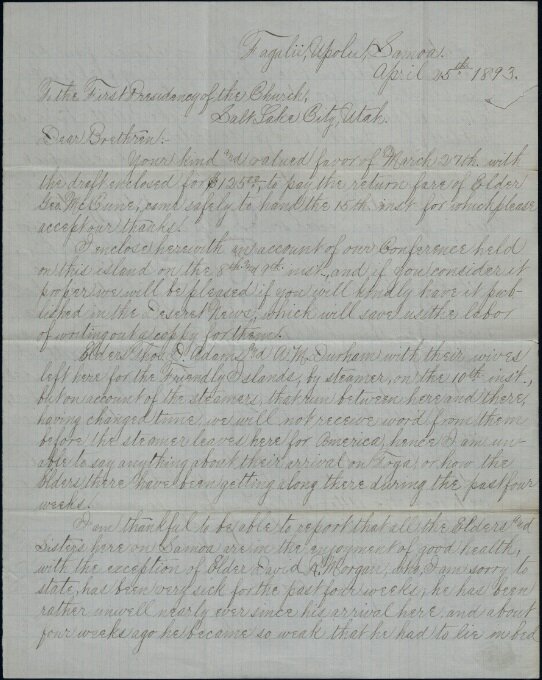 Fagalii, Upolu, Samoa.
April 25th 1893.
To the First Presidency of the Church,
Salt Lake City, Utah.
Dear Brethren:-
Your kind and valued favor of March 27th with
the draft enclosed for $125.00 to pay the return fare of Elder
Geo. McCune, came safely to hand the 15th inst for which please
accept our thanks.
I enclose herewith an account of our Conference held
on this island on the 8th and 9th inst. and if you consider it
proper we will be pleased if you will kindly have it pub-
lished in the Deseret News, which will save us the labor
of writing out a coppy for them.
Elders Thos. Adams and A. M. Durham with their wives
left here for the Friendly Islands, by steamer, on the 10th inst.,
but on account of the steamers, that run between here and there,
having changed time, we will not receive word from them
before the steamer leaves here for America, hence I am un-
able to say anything about their arrival on Toga, or how the
Elders there have been getting along there during the past four
weeks.
I am thankful to be able to report that all the Elders and
Sisters here on Samoa are in the enjoyment of good health,
with the exception of Elder David A. Morgan, who, I am sorry to
state, has been very sick for the past four weeks; he has been
rather unwell nearly ever since his arrival here and about
four weeks ago he became so weak that he had to lie in bed